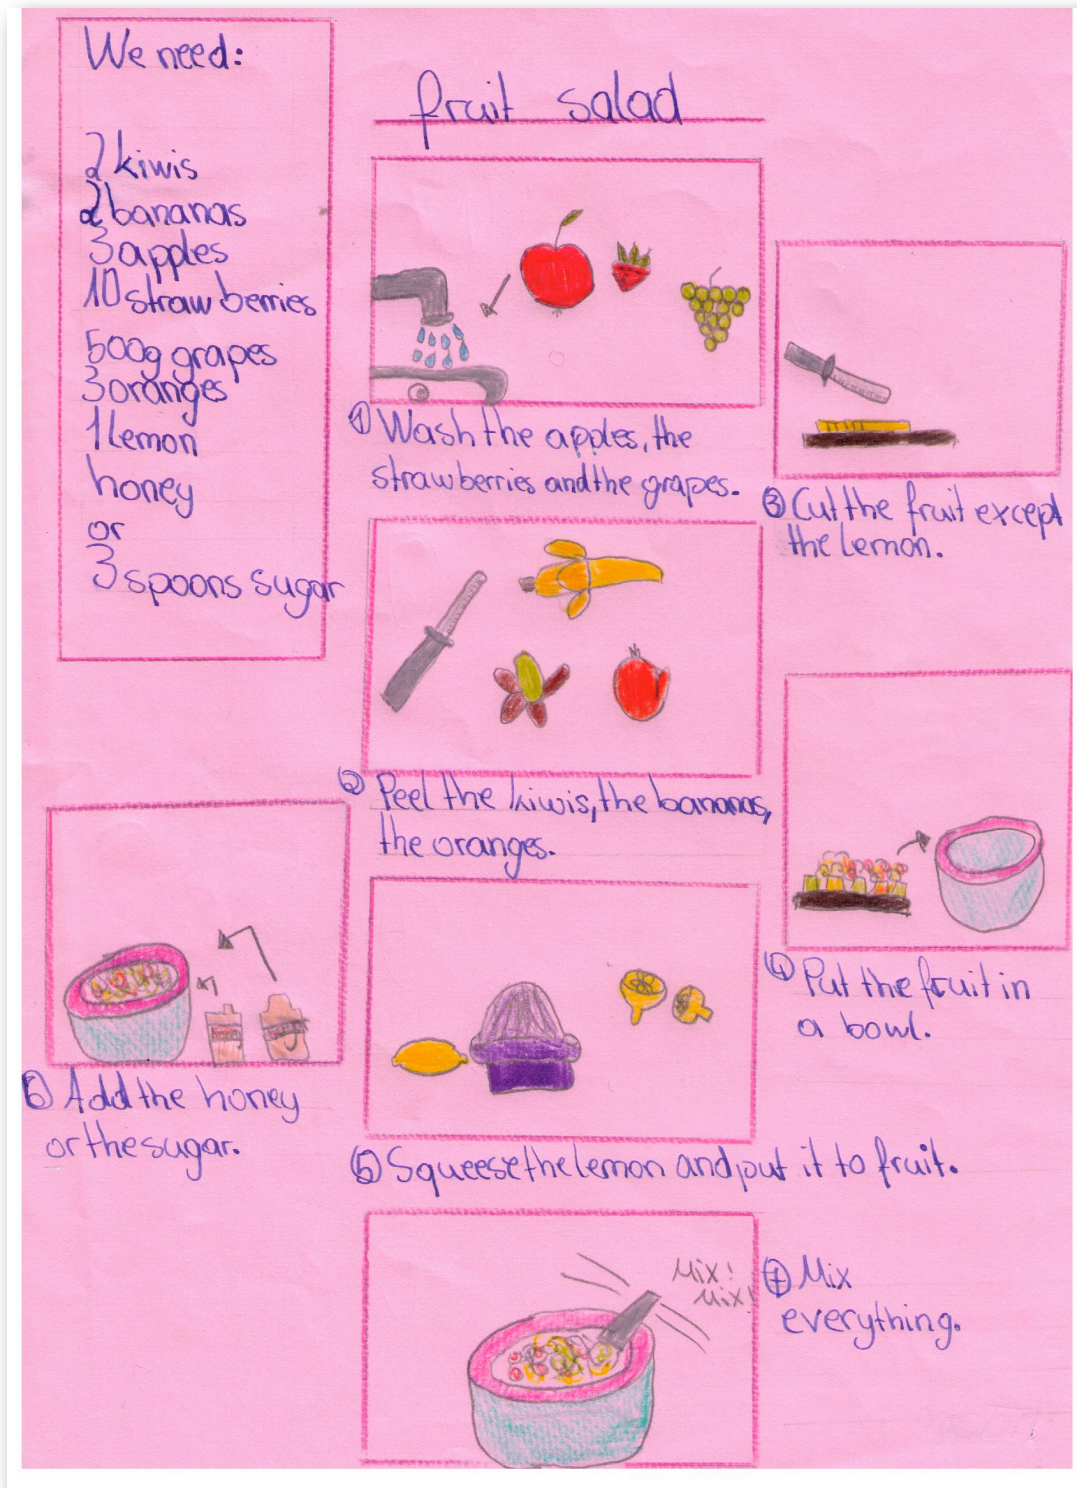 We need:
2 kiwis
2 bananas
3 apples
10 strawberries
500g grapes
3 oranges
1 lemon
honey
or
3 spoons sugar
fruit salad
① Wash the apples, the
strawberries and the grapes.
② Peel the kiwis, the bananas,
the oranges.
③ Cut the fruit except
the lemon.
④ Put the fruit in
a bowl.
⑤ Squeese the lemon and put it to fruit.
⑥ Add the honey
or the sugar.
Mix!
Mix!
⑦ Mix
everything.